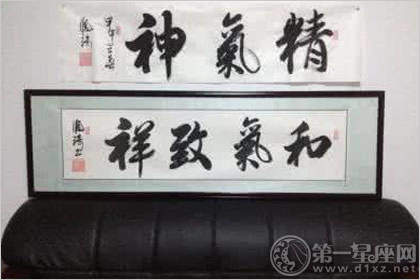 精氣神
和氣致祥
第一星座网
www.d1xz.net